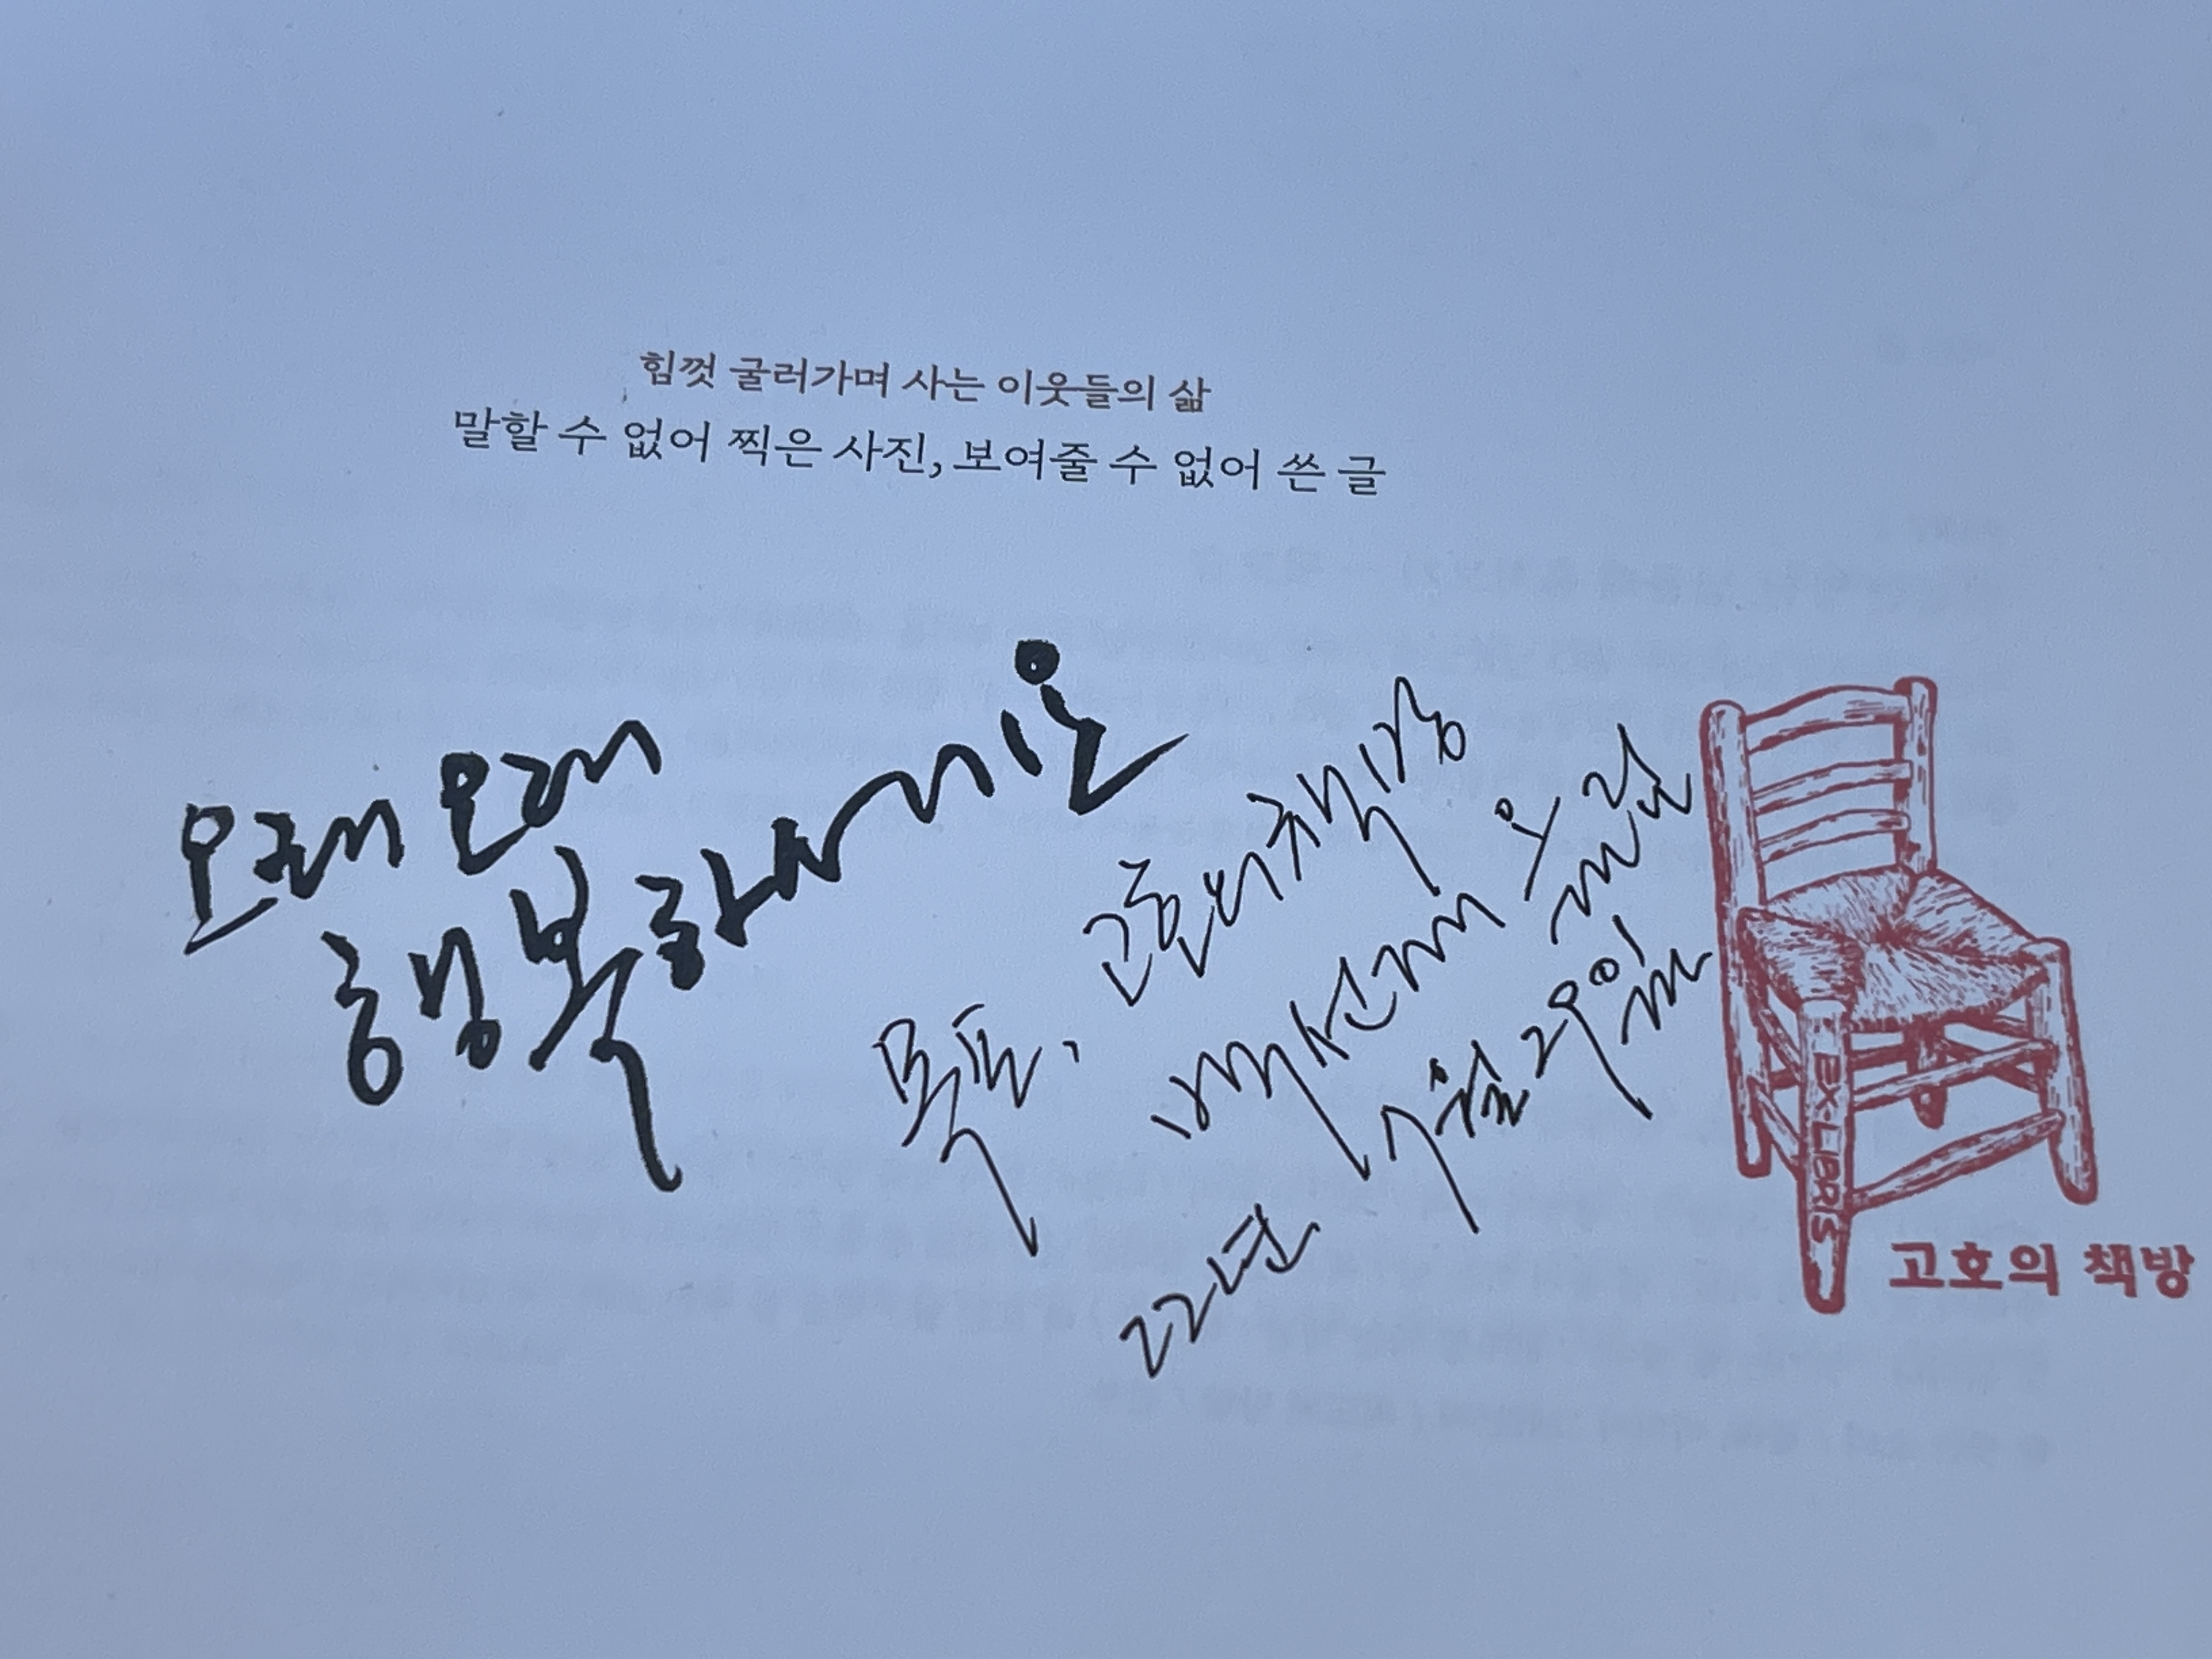 힘껏 굴러가며 사는 이웃들의 삶
말할 수 없어 찍은 사진, 보여줄 수 없어 쓴 글
오래오래
행복하세요
목포, 고호의책방
22년 7월 29일
EX-LIBRIS
고호의 책방